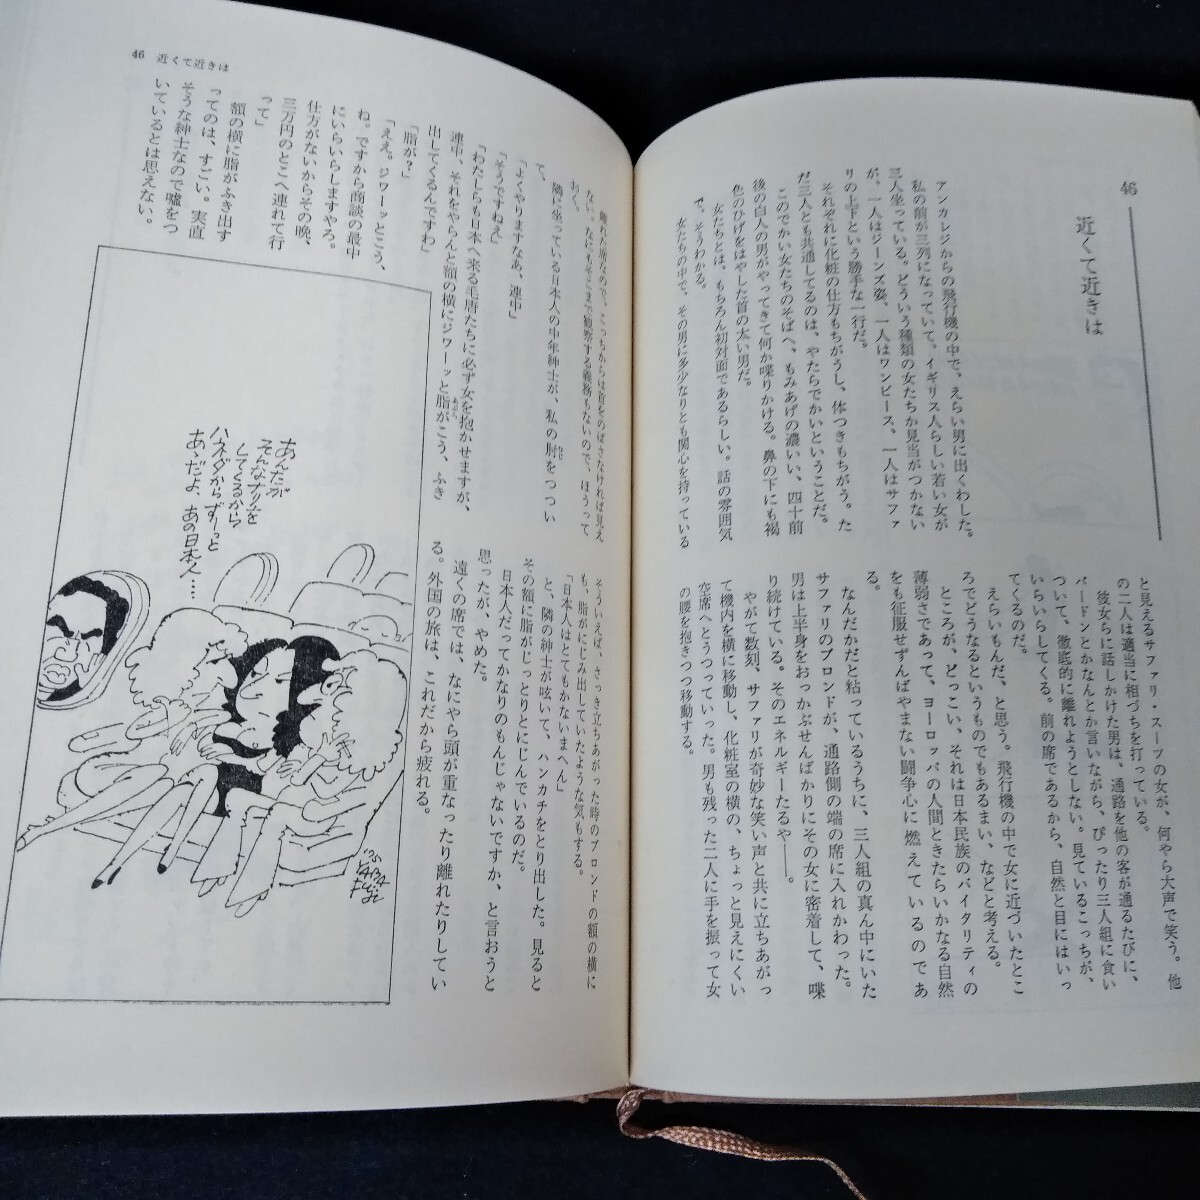 46
近くて近きは
アンカレジからの飛行機の中で、えらい男に出くわした。
私の前が三列になっていて、イギリス人らしい若い女が
三人坐っている。どういう種類の女たちか見当がつかない
が、一人はジーンズ姿、一人はワンピース、一人はサファ
リの上下という勝手な一行だ。
それぞれに化粧の仕方もちがうし、体つきもちがう。た
だ三人とも共通してるのは、やたらでかいということだ。
このでかい女たちのそばへ、もみあげの濃いい、四十前
後の白人の男がやってきて何か喋りかける。鼻の下にも褐
色のひげをはやした首の太い男だ。
女たちとは、もちろん初対面であるらしい。話の雰囲気
で、そうわかる。
女たちの中で、その男に多少なりとも関心を持っている
と見えるサファリ・スーツの女が、何やら大声で笑う。他
の二人は適当に相づちを打っている。
彼女らに話しかけた男は、通路を他の客が通るたびに、
パードンとかなんとか言いながら、ぴったり三人組に食い
ついて、徹底的に離れようとしない。見ているこっちが、
いらいらしてくる。前の席であるから、自然と目にはいっ
てくるのだ。
えらいもんだ、と思う。飛行機の中で女に近づいたとこ
ろでどうなるというものでもあるまい、などと考える。
ところが、どっこい、それは日本民族のバイタリティの
薄弱さであって、ヨーロッパの人間ときたらいかなる自然
をも征服せずんばやまない闘争心に燃えているのであ
る。
なんだかだと粘っているうちに、三人組の真ん中にいた
サファリのブロンドが、通路側の端の席に入れかわった。
男は上半身をおっかぶせんばかりにその女に密着して、喋
り続けている。そのエネルギーたるや――。
やがて数刻、サファリが奇妙な笑い声と共に立ちあがっ
て機内を横に移動し、化粧室の横の、ちょっと見えにくい
空席へとうつっていった。男も残った二人に手を振って女
の腰を抱きつつ移動する。
46 近くて近きは
離れた席なので、こっちからは首をのばさなければ見え
ない。なにもそこまで観察する義務もないので、ほうって
おく。
隣に坐っている日本人の中年紳士が、私の肘をつつい
ひじ
て、
「よくやりますなあ、連中」
「そうですねえ」
「わたしらも日本へ来る毛唐たちに必ず女を抱かせますが、
連中、それをやらんと額の横にジワーッと脂がこう、ふき
あぶら
出してくるんですわ」
「脂が？」
「ええ。ジワーッとこう、
ね。ですから商談の最中
にいらいらしますやろ。
仕方がないからその晩、
三万円のとこへ連れて行
って」
額の横に脂がふき出す
ってのは、すごい。実直
そうな紳士なので嘘をつ
いているとは思えない。
そういえば、さっき立ちあがった時のブロンドの額の横に
も、脂がにじみ出していたような気もする。
「日本人はとてもかないまへん」
と、隣の紳士が呟いて、ハンカチをとり出した。見ると
その額に脂がじっとりとにじんでいるのだ。
日本人だってかなりのもんじゃないですか、と言おうと
思ったが、やめた。
遠くの席では、なにやら頭が重なったり離れたりしてい
る。外国の旅は、これだから疲れる。
あんたが
そんなナリを
してくるから
ハネダからずーっと
あゝだよ、あの日本人…